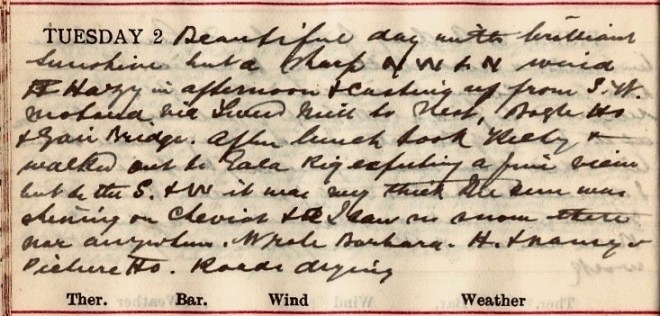 TUESDAY 2 Beautiful day with brilliant
sunshine but a sharp N W & N wind
Hazy in afternoon & casting up from S.W.
Motored via Tweed to Nest, Bogle Ho
& Yair Bridge. After lunch took &
walked out to Gala Rig expecting a fine view
but to the S. & W it was very thick the sun was
shining on Cheviot & I saw no snow there
nor anywhere. Wrote Barbara. H. & Nancy
Picture Ho. Roads drying
Ther. Bar. Wind Weather